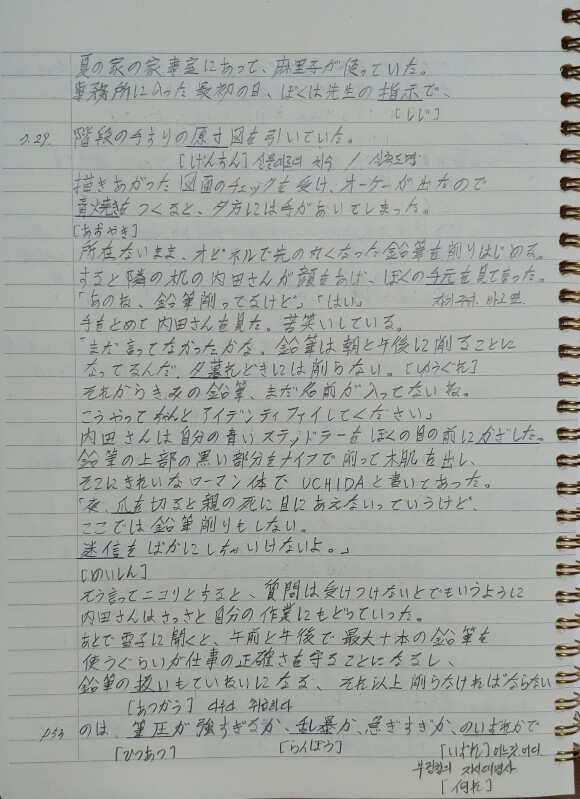 夏の家の家事室にあって、麻里子が使っていた。
事務所に入った最初の日、ぼくは先生の指示で、
[しじ]
p.29. 階段の手すりの原寸図を引いていた。
[げんすん] 실물크기의 치수 / 실측도면
描きあがった図面のチェックを受け、オーケーが出たので
青焼きをつくると、夕方には手があいてしまった。
[あおやき]
所在ないまま、オピネルで先の丸くなった鉛筆を削りはじめる。
すると隣の机の内田さんが顔をあげ、ぼくの手元を見て言った。
「あのね、鉛筆削ってるけど」「はい」 자기 주위. 바로 옆
手をとめて内田さんを見た。苦笑いしている。
「まだ言ってなかったかな。鉛筆は朝と午後に削ることに
なってるんだ、夕暮れどきには削らない。[ゆうぐれ]
それからきみの鉛筆、まだ名前が入ってないね。
こうやってちゃんとアイデンティファイしてください」
内田さんは自分の青いステッドラーをぼくの目の前にかざした。
鉛筆の上部の黒い部分をナイフで削って木肌を出し、
そこにきれいなローマン体で UCHIDAと書いてあった。
「夜、爪を切ると親の死に目にあえないっていうけど、
ここでは鉛筆削りもしない。
迷信をばかにしちゃいけないよ。」
[めいしん]
そう言ってニコリとすると、質問は受けつけないとでもいうように
内田さんはさっさと自分の作業にもどっていった。
あとで雪子に聞くと、午前と午後で最大十本の鉛筆を
使うぐらいが仕事の正確さを守ることになるし、
鉛筆の扱いもていねいになる、それ以上削らなければならない
[あつかう] 다루다 취급하다
p53 のは、筆圧が強すぎるか、乱暴か、急ぎすぎか、のいずれかで
[ひつあつ] [らんぼう] [いずれ] 어느것. 어디
부정칭의 지시대명사
[何れ]